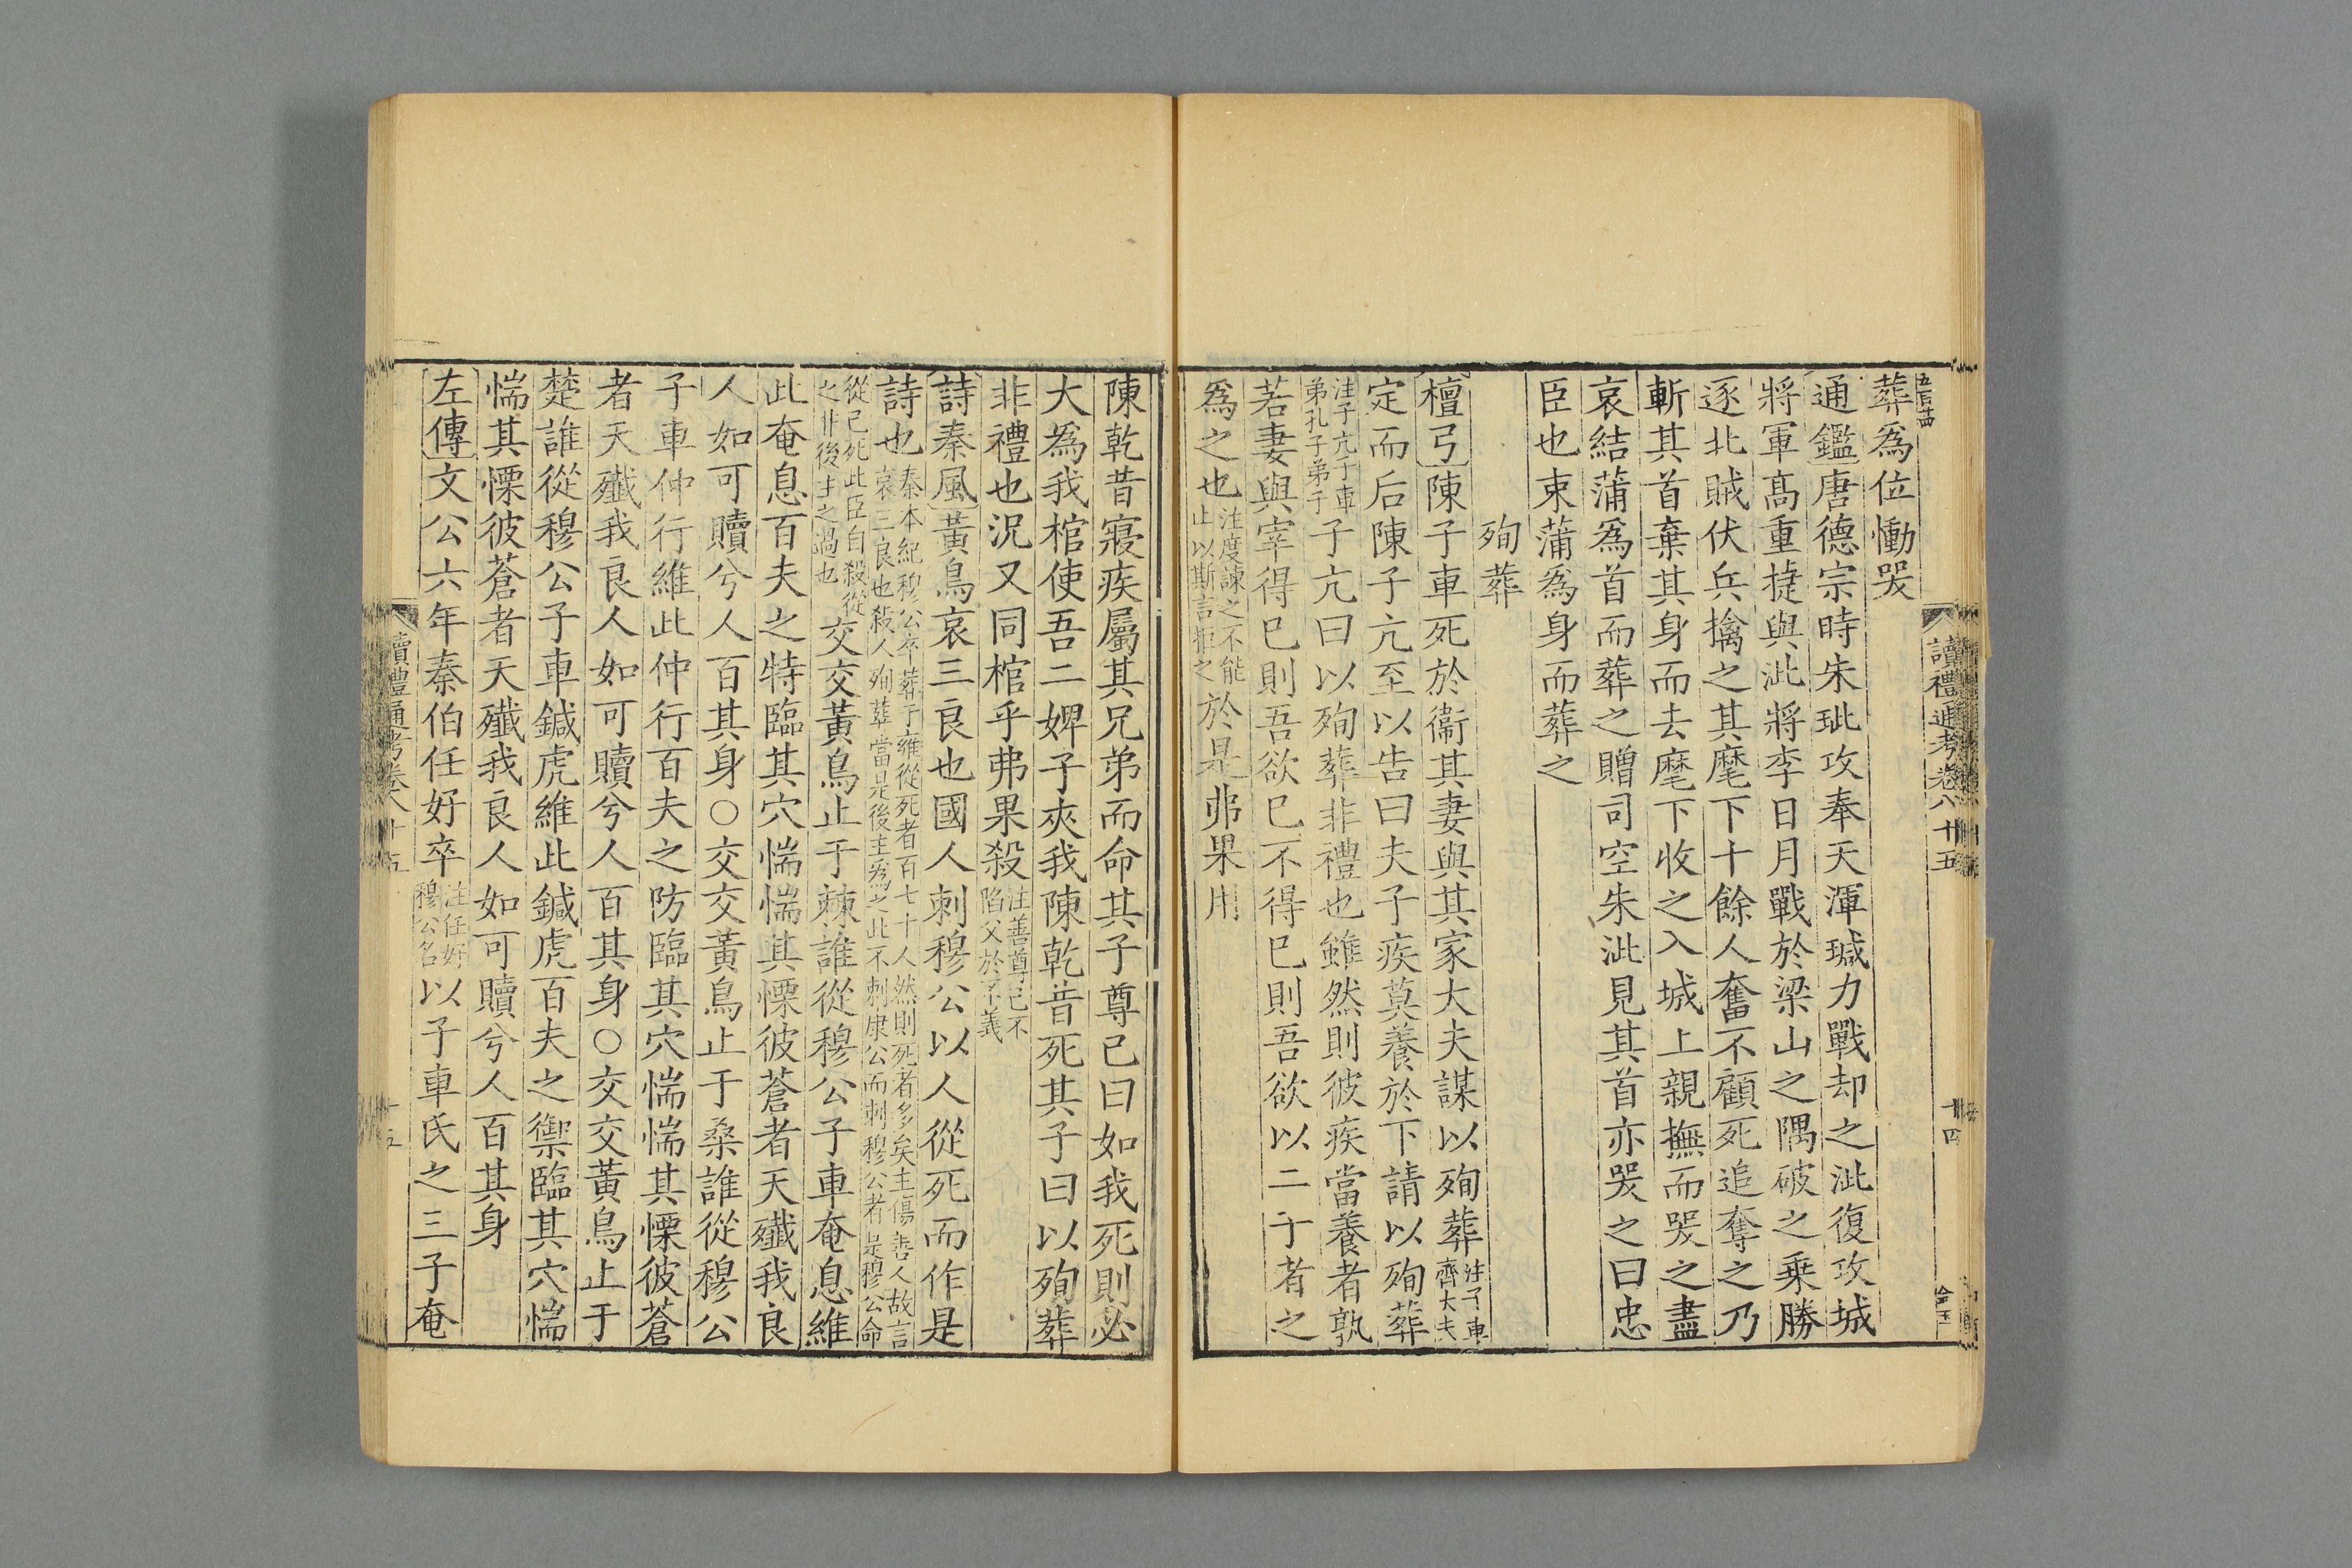 讀禮通考卷八十五
廿四
葬爲位慟哭
通鑑唐德宗時朱玼攻奉天渾瑊力戰却之泚復攻城
將軍高重捷與泚將李日月戰於梁山之隅破之乗勝
逐北賊伏兵擒之其麾下十餘人奮不顧死追奪之乃
斬其首棄其身而去麾下收之入城上親撫而哭之盡
哀結蒲爲首而葬之贈司空朱泚見其首亦哭之曰忠
臣也束蒲爲身而葬之
殉葬
檀弓陳子車死於衞其妻與其家大夫謀以殉葬注子車齊大夫
定而后陳子亢至以告曰夫子疾莫養於下請以殉葬
注子亢子車弟孔子弟子子亢曰以殉葬非禮也雖然則彼疾當養者孰
若妻與宰得已則吾欲已不得已則吾欲以二子者之
爲之也注度諫之不能止以斯言拒之於是弗果用
陳乾昔寢疾屬其兄弟而命其子尊己曰如我死則必
大爲我棺使吾二婢子夾我陳乾昔死其子曰以殉葬
非禮也況又同棺乎弗果殺注善尊己不陷父於不義
詩秦風黃鳥哀三良也國人刺穆公以人從死而作是
詩也秦本紀穆公卒葬于雍從死者百七十人然則死者多矣主傷善人故言哀三良也殺人殉葬當是後主爲之此不刺康公而刺穆公者是穆公命
從己死此臣自殺從之非後主之過也交交黃鳥止于棘誰從穆公子車奄息維
此奄息百夫之特臨其穴惴惴其慄彼蒼者天殲我良
人如可贖兮人百其身○交交黃鳥止于桑誰從穆公
子車仲行維此仲行百夫之防臨其穴惴惴其慄彼蒼
者天殲我良人如可贖兮人百其身○交交黃鳥止于
楚誰從穆公子車鍼虎維此鍼虎百夫之禦臨其穴惴
惴其慄彼蒼者天殲我良人如可贖兮人百其身
左傳文公六年秦伯任好卒注任好穆公名以子車氏之三子奄
讀禮通考卷八十五